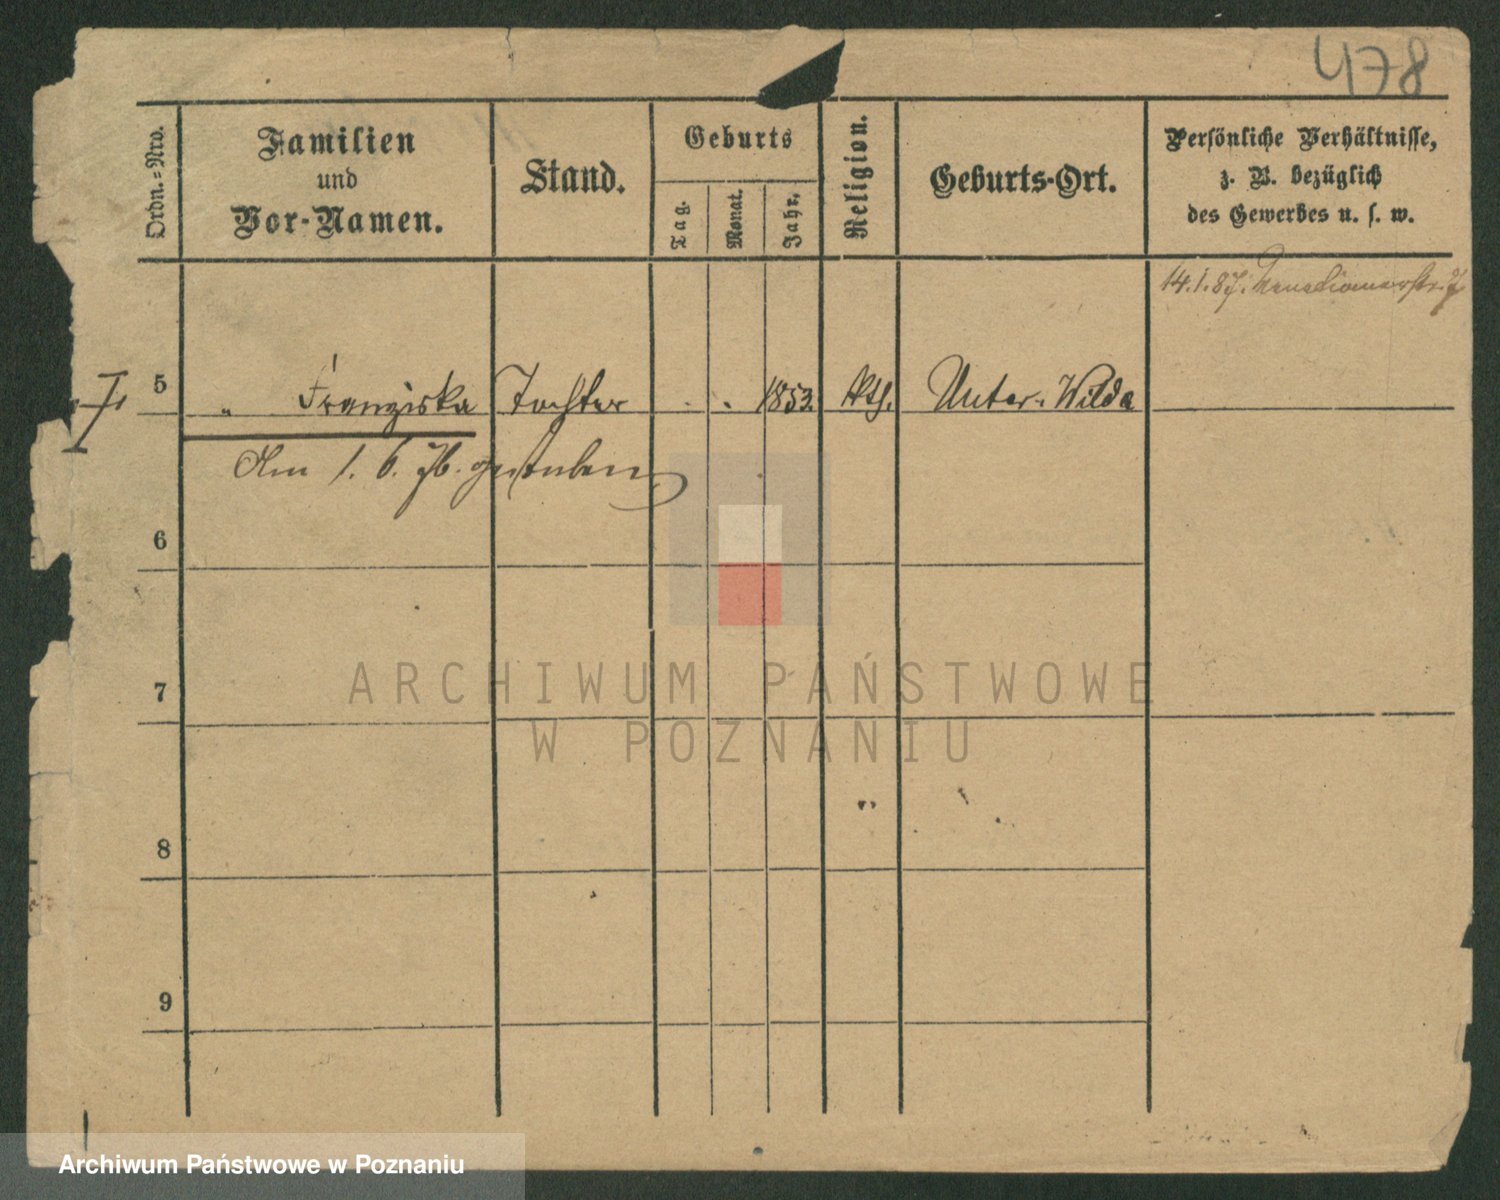 478
Ordn.-Nro.
Familien
und
Vor-Namen.
Stand.
Geburts
Tag.
Monat.
Jahr.
Religion.
Geburts-Ort.
Persönliche Verhältnisse,
z. B. bezüglich
des Gewerbes u. s. w.
14.1.87.
5 " Franziska Tochter . . 1853. kth. Unter-Wilda
Am 1. 6. 76. gestorben
6
7
8
9
ARCHIWUM PAŃSTWOWE
W POZNANIU
Archiwum Państwowe w Poznaniu